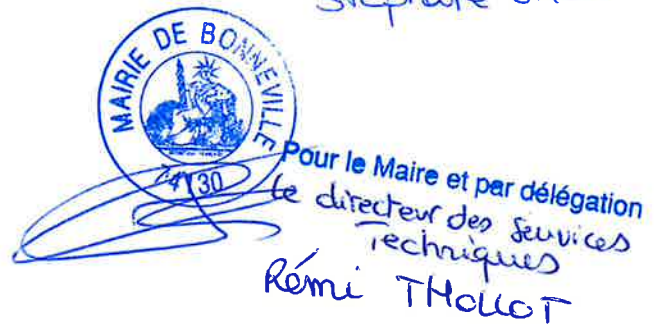 Stéphane
MAIRIE DE BONNEVILLE
74130
Pour le Maire et par délégation
Le directeur des Services
Techniques
Rémi THOLLOT